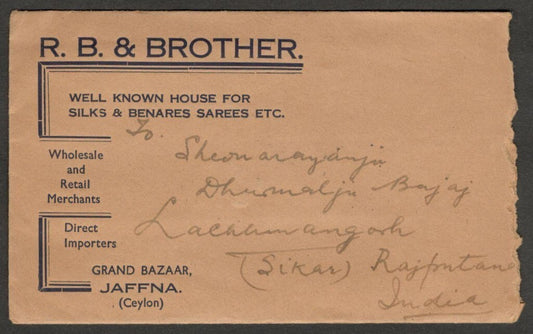 R. B. & BROTHER.
WELL KNOWN HOUSE FOR
SILKS & BENARES SAREES ETC.
Wholesale
and
Retail
Merchants
Direct
Importers
GRAND BAZAAR,
JAFFNA.
(Ceylon)
To.
Sheonarayanji
Dhurmalji Bajaj
Lachhmangarh
(Sikar) Rajputana
India